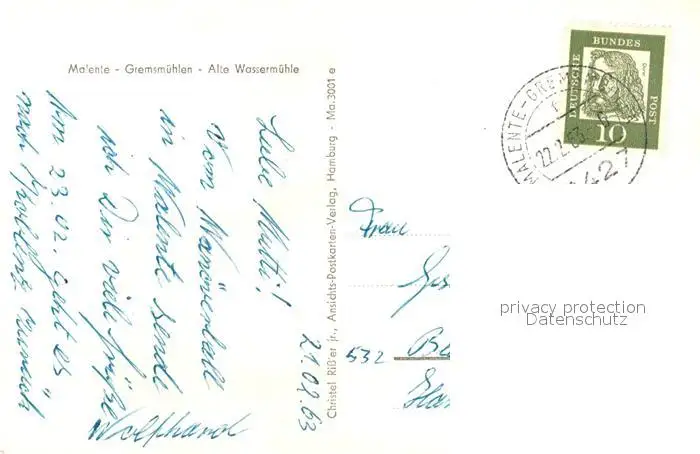 Malente - Gremsmühlen - Alte Wassermühle
21.02.63
Liebe Mutti!
Vom Manöverball
in Malente sende
ich Dir viele Grüße
Am 23.02. geht es
nach zurück
Wolfhard
Christel Riß'er jr., Ansichts-Postkarten-Verlag, Hamburg - Ma.3001 e
Frau
532
DEUTSCHE BUNDES POST
10
MALENTE-GREM
22.2.63
427
privacy protection
Datenschutz